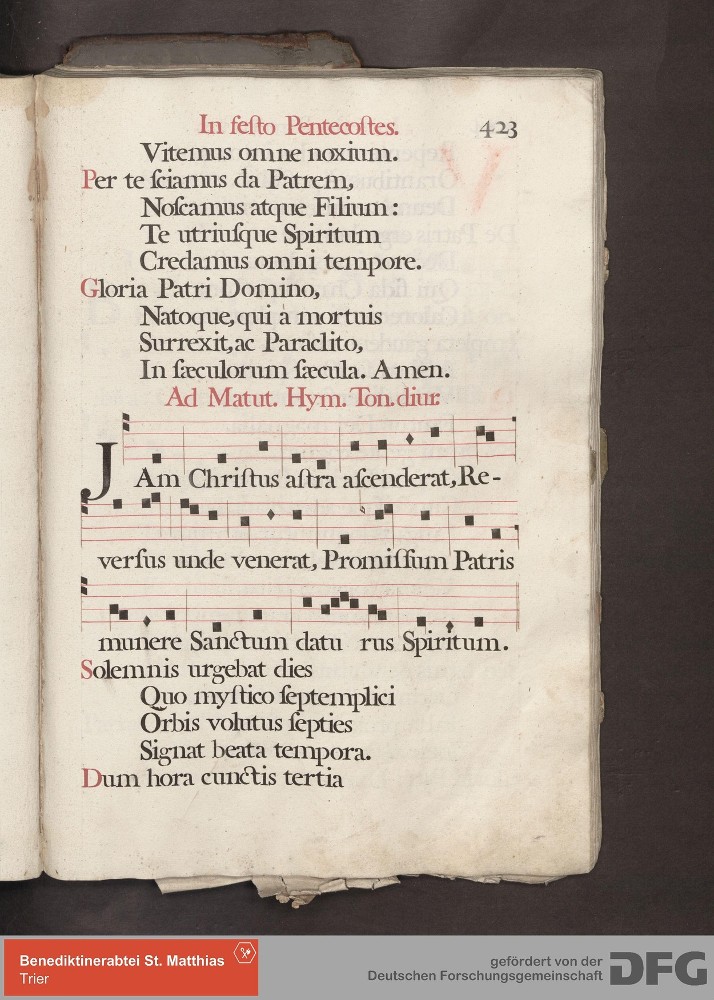 In feſto Pentecoſtes. 423
Vitemus omne noxium.
Per te ſciamus da Patrem,
Noſcamus atque Filium:
Te utriuſque Spiritum
Credamus omni tempore.
Gloria Patri Domino,
Natoque, qui à mortuis
Surrexit, ac Paraclito,
In ſæculorum ſæcula. Amen.
Ad Matut. Hym. Ton. diur.
JAm Chriſtus aſtra aſcenderat, Re-
verſus unde venerat, Promiſſum Patris
munere Sanctum datu rus Spiritum.
Solemnis urgebat dies
Quo myſtico ſeptemplici
Orbis volutus ſepties
Signat beata tempora.
Dum hora cunctis tertia
Benediktinerabtei St. Matthias
Trier
gefördert von der
Deutschen Forschungsgemeinschaft DFG